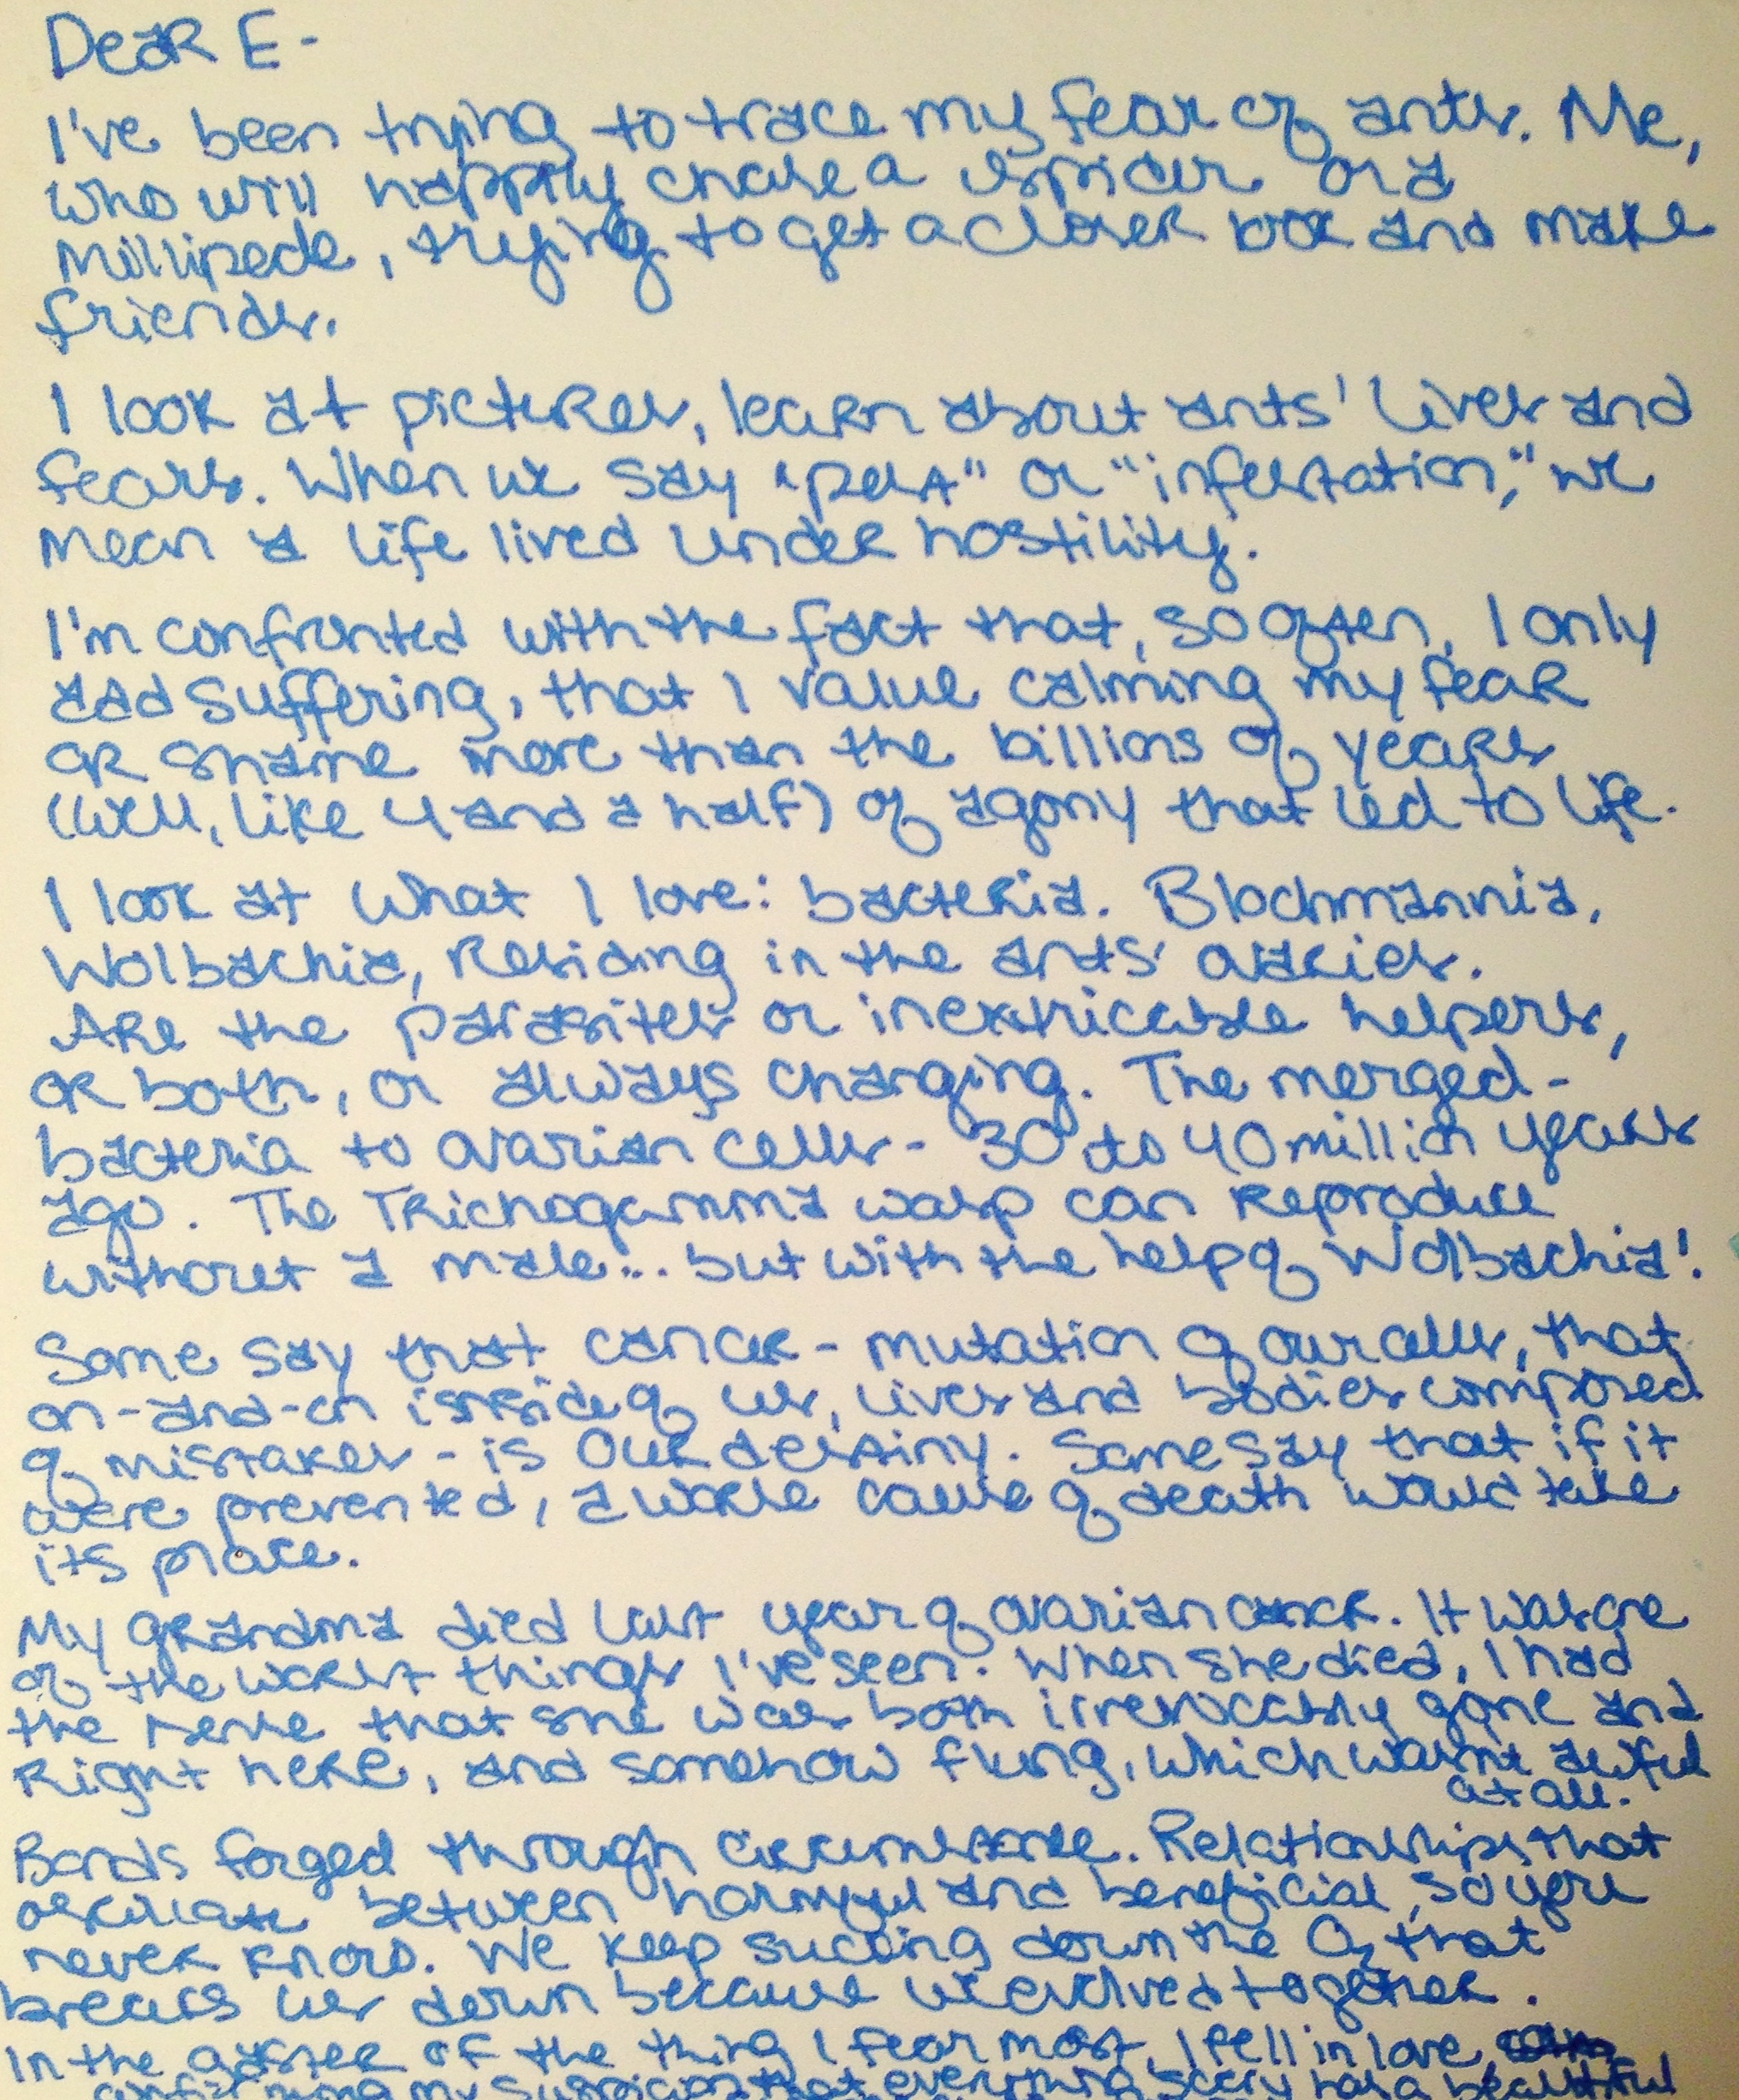 Dear E-
I've been trying to trace my fear of ants. Me,
who will happily chase a spider or a
millipede, trying to get a closer look and make
friends.
I look at pictures, learn about ants' lives and
fears. When we say "pest" or "infestation," we
mean a life lived under hostility.
I'm confronted with the fact that, so often, I only
add suffering, that I value calming my fear
or shame more than the billions of years
(well, like 4 and a half) of agony that led to life.
I look at what I love: bacteria. Blochmannia,
Wolbachia, residing in the ants' ovaries.
Are the parasites or inextricable helpers,
or both, or always changing. The merged-
bacteria to ovarian cells - 30 to 40 million years
ago. The Trichogamma wasp can reproduce
without a male... but with the help of Wolbachia!
Some say that cancer - mutation of our cells, that
on-and-on inside of us, lives and bodies composed
of mistakes - is our destiny. Some say that if it
were prevented, a worse cause of death would take
its place.
My grandma died last year of ovarian cancer. It was one
of the worst things I've seen. When she died, I had
the sense that she was both irrevocably gone and
right here, and somehow flung, which wasn't awful
at all.
Bonds forged through circumstance. Relationships that
oscillate between harmful and beneficial, so you
never know. We keep sucking down the O2 that
breaks us down because we evolved together.
In the of the thing I fear most, I fell in love,
my suspicion that everything scary has a beautiful